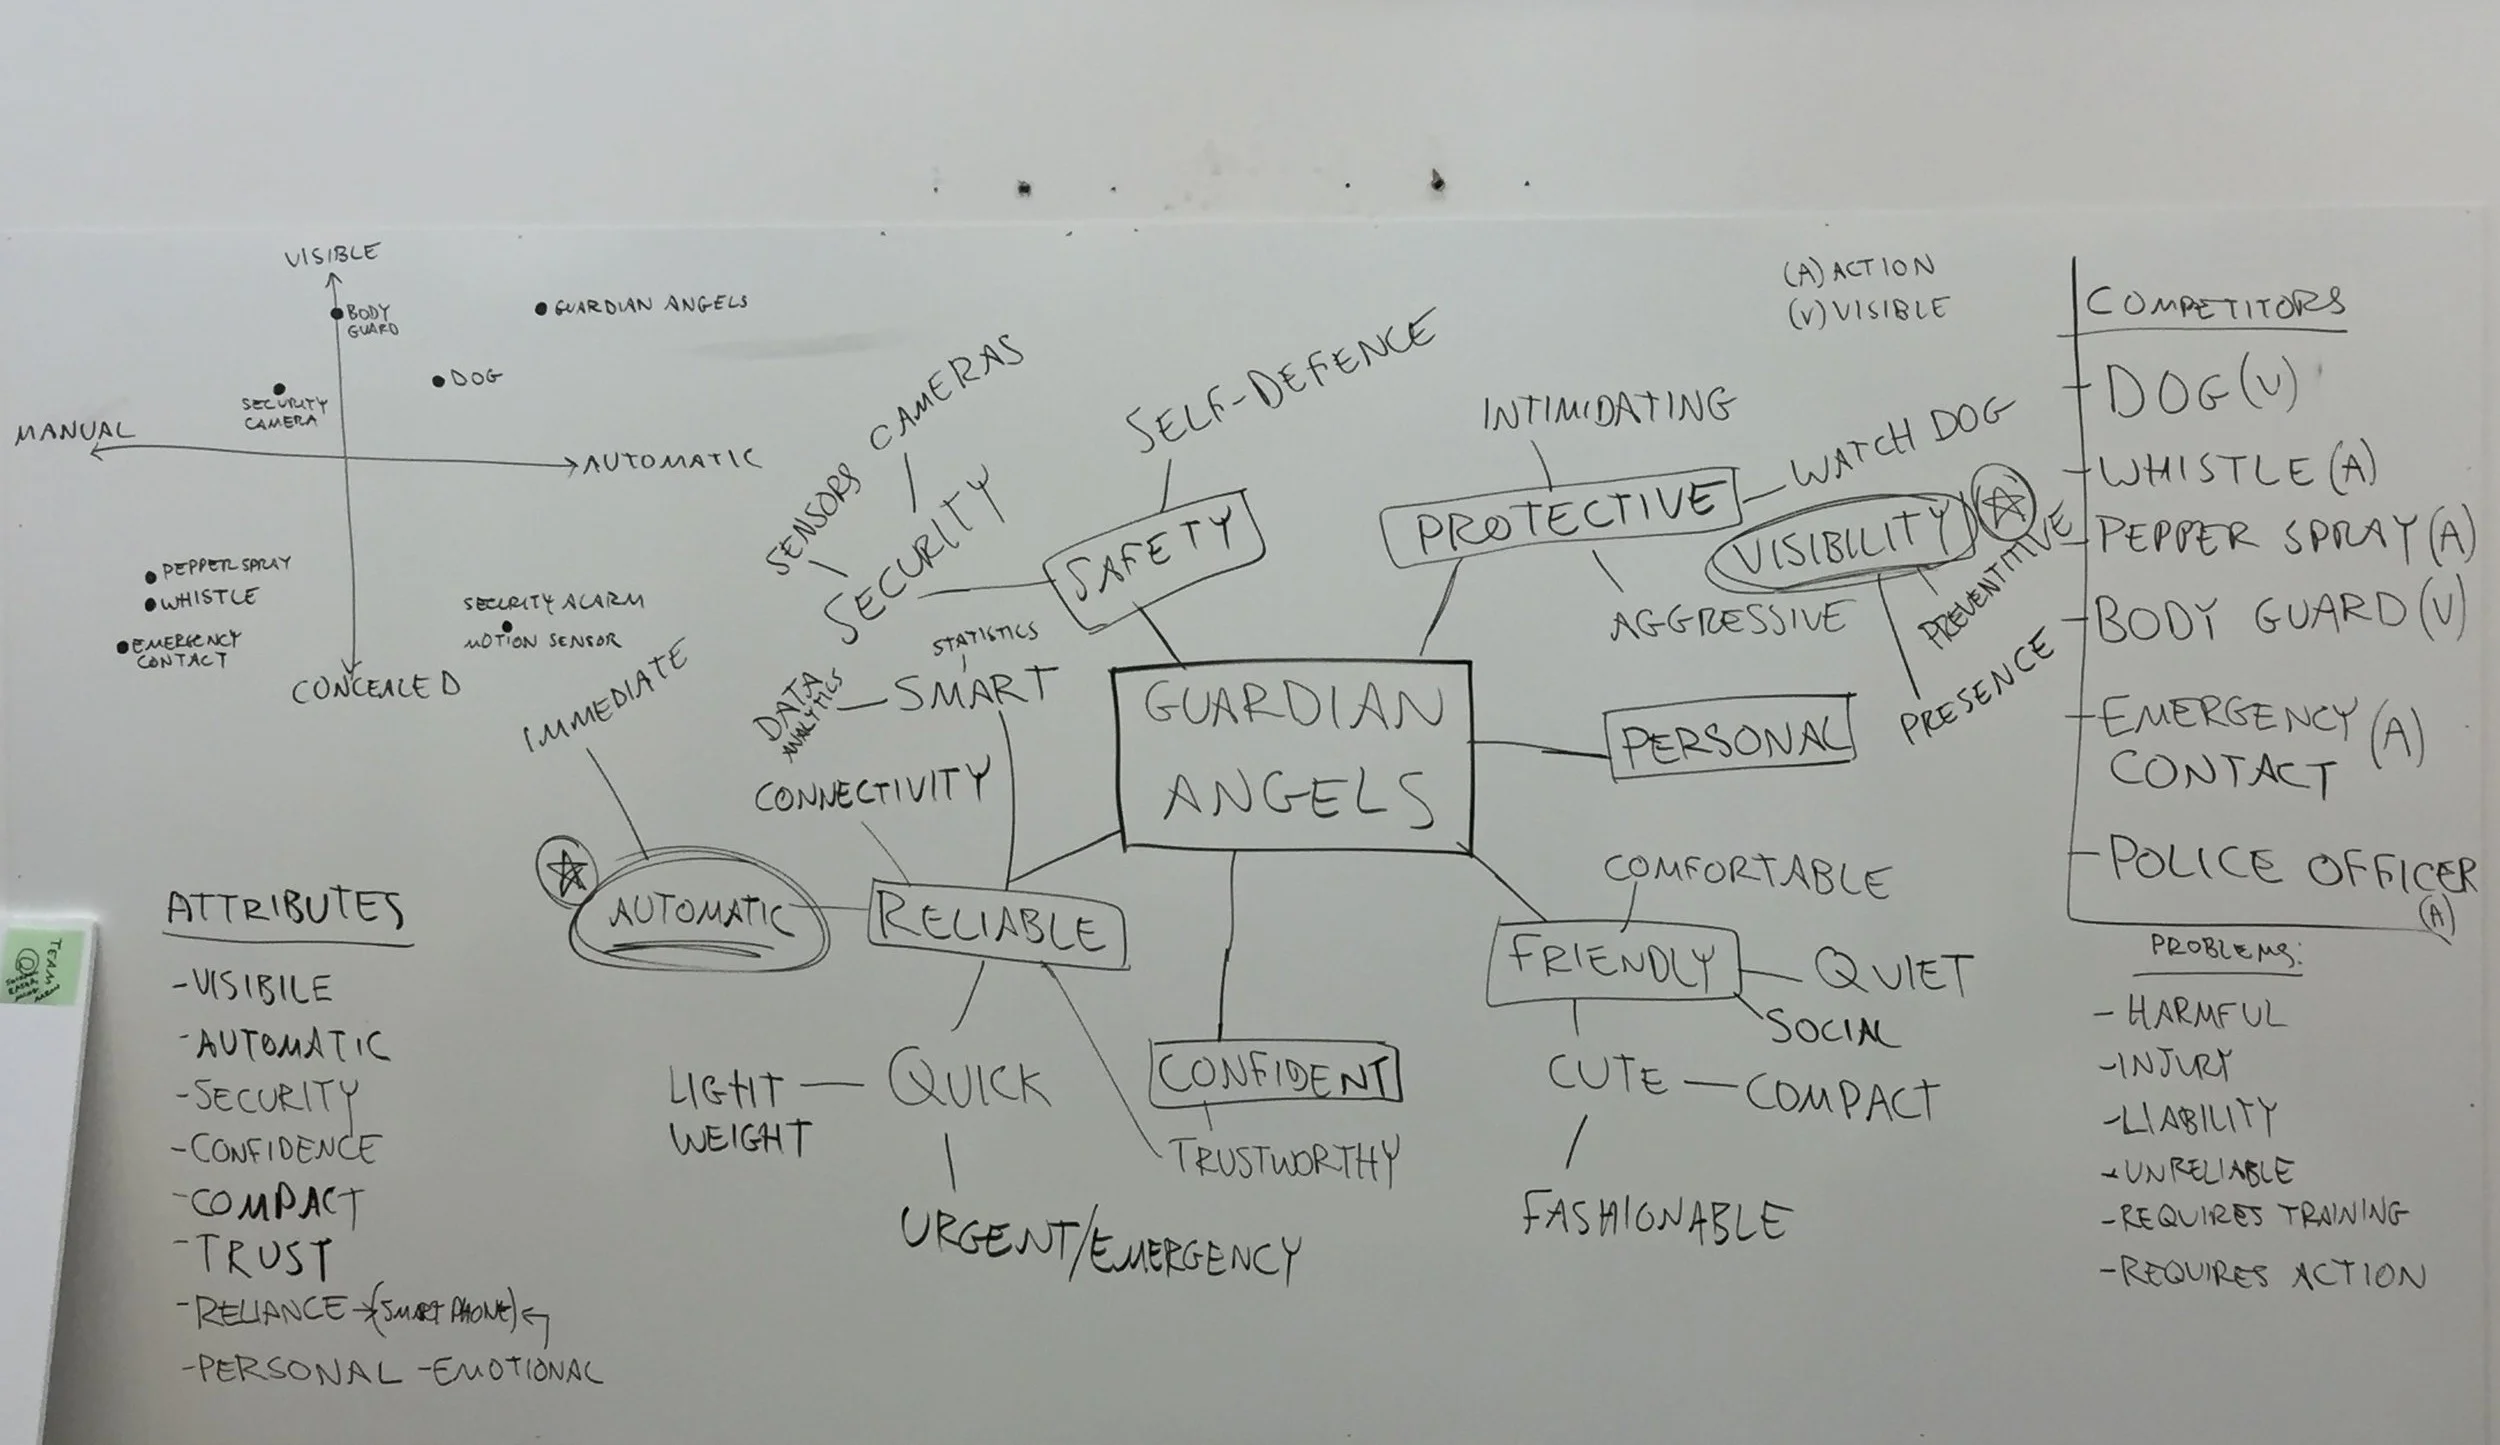 VISIBLE
BODY
GUARD
GUARDIAN ANGELS
DOG
SECURITY
CAMERA
MANUAL
AUTOMATIC
PEPPER SPRAY
WHISTLE
EMERGENCY
CONTACT
SECURITY ALARM
MOTION SENSOR
CONCEALED
ATTRIBUTES
-VISIBILE
-AUTOMATIC
-SECURITY
-CONFIDENCE
-COMPACT
-TRUST
-RELIANCE →(SMART PHONE)
-PERSONAL -EMOTIONAL
TEAM
GUARDIAN
ANGELS
SAFETY
SELF-DEFENCE
SECURITY
CAMERAS
SENSORS
SMART
STATISTICS
DATA
ANALYTICS
CONNECTIVITY
RELIABLE
AUTOMATIC
IMMEDIATE
QUICK
LIGHT
WEIGHT
URGENT/EMERGENCY
CONFIDENT
TRUSTWORTHY
FRIENDLY
COMFORTABLE
QUIET
SOCIAL
CUTE
COMPACT
FASHIONABLE
PERSONAL
PROTECTIVE
INTIMIDATING
WATCH DOG
AGGRESSIVE
VISIBILITY
PREVENTITIVE
PRESENCE
(A) ACTION
(V) VISIBLE
COMPETITORS
DOG (V)
WHISTLE (A)
PEPPER SPRAY (A)
BODY GUARD (V)
EMERGENCY
CONTACT (A)
POLICE OFFICER
(A)
PROBLEMS:
- HARMFUL
-INJURY
-LIABILITY
-UNRELIABLE
-REQUIRES TRAINING
-REQUIRES ACTION